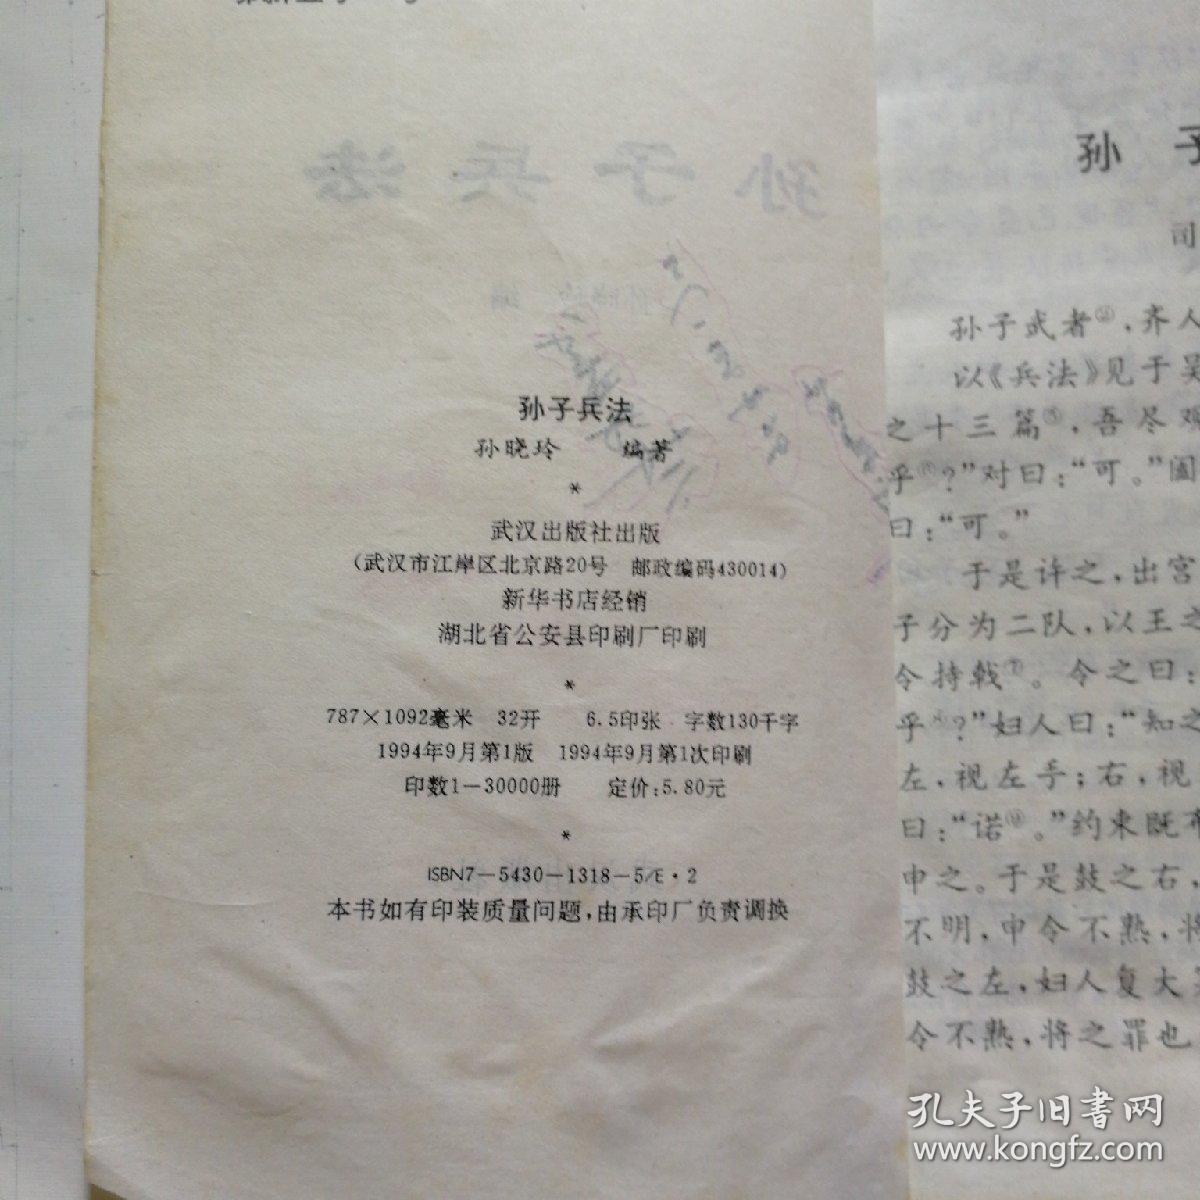 孙子兵法
孙晓玲 编著
*
武汉出版社出版
(武汉市江岸区北京路20号 邮政编码430014)
新华书店经销
湖北省公安县印刷厂印刷
*
787×1092毫米 32开 6.5印张 字数130千字
1994年9月第1版 1994年9月第1次印刷
印数1—30000册 定价:5.80元
*
ISBN7—5430—1318—5/E·2
本书如有印装质量问题,由承印厂负责调换
孙 子
司
孙子武者②,齐人
以《兵法》见于吴
之十三篇⑤,吾尽观
乎⑥?”对曰:“可。”阖
曰:“可。”
于是许之,出宫
子分为二队,以王之
令持戟⑦。令之曰:
乎⑧?”妇人曰:“知之
左,视左手;右,视
曰:“诺⑨。”约束既布
申之。于是鼓之右,
不明,申令不熟,将
鼓之左,妇人复大笑
令不熟,将之罪也
孔夫子旧书网
www.kongfz.com